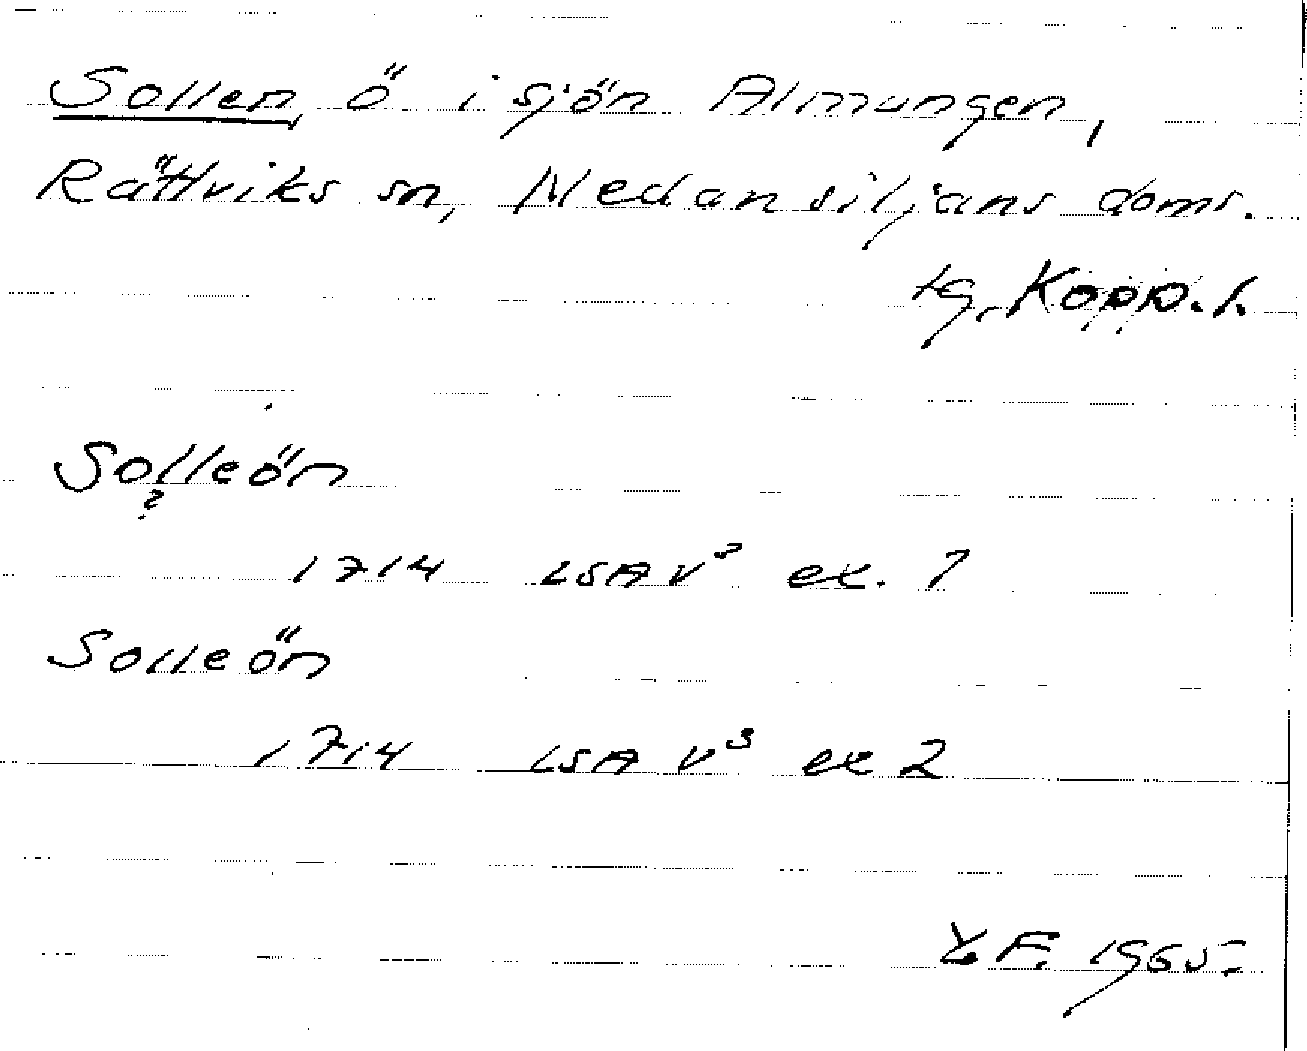 Sollen, ö i sjön Almungen,
Rättviks sn, Nedansiljans doms.
tg, Kopp. l.
Solleön
?
1714 LSA V³ ex. 1
Solleön
1714 LSA V³ ex 2
F. 1965.